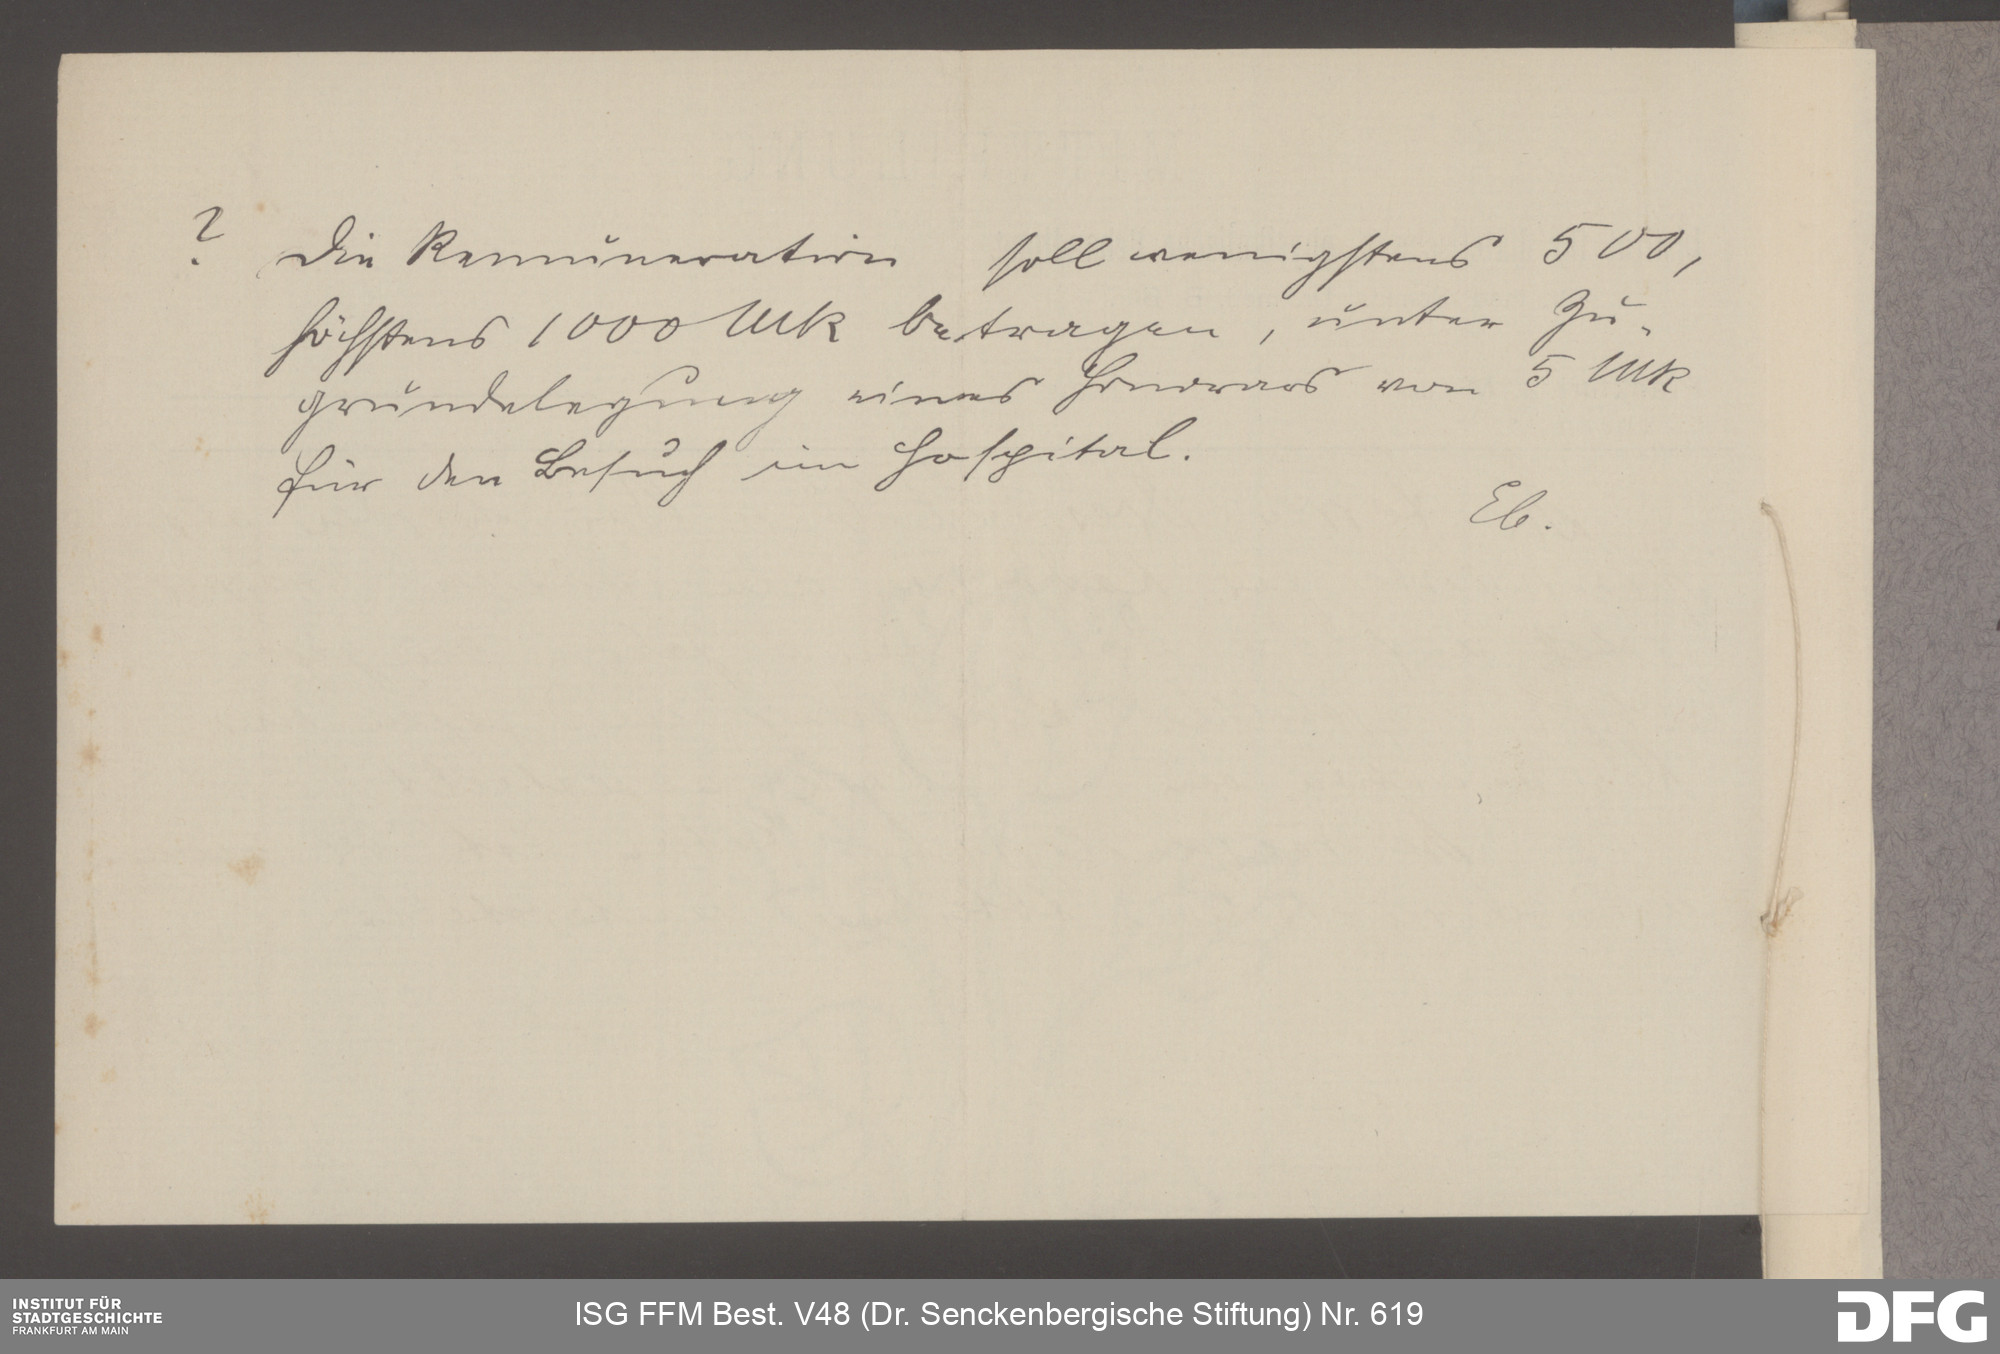 ? Die Remuneration soll wenigstens 500,
höchstens 1000 Mk betragen, unter Zu-
grundelegung eines Honorars von 5 Mk
für den Besuch im Hospital.
Eb.
INSTITUT FÜR
STADTGESCHICHTE
FRANKFURT AM MAIN
ISG FFM Best. V48 (Dr. Senckenbergische Stiftung) Nr. 619
DFG